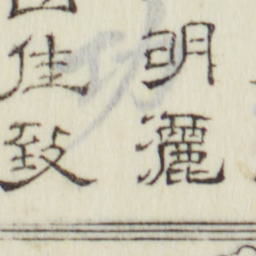 明灑
佳致